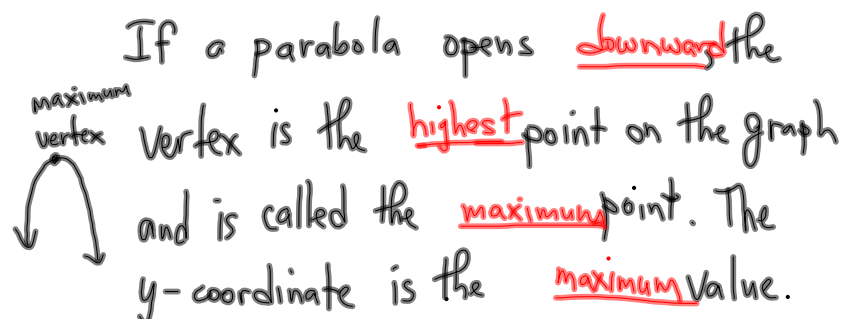 If a parabola opens downward, the
maximum
vertex
vertex is the highest point on the graph
and is called the maximum point. The
y-coordinate is the maximum value.